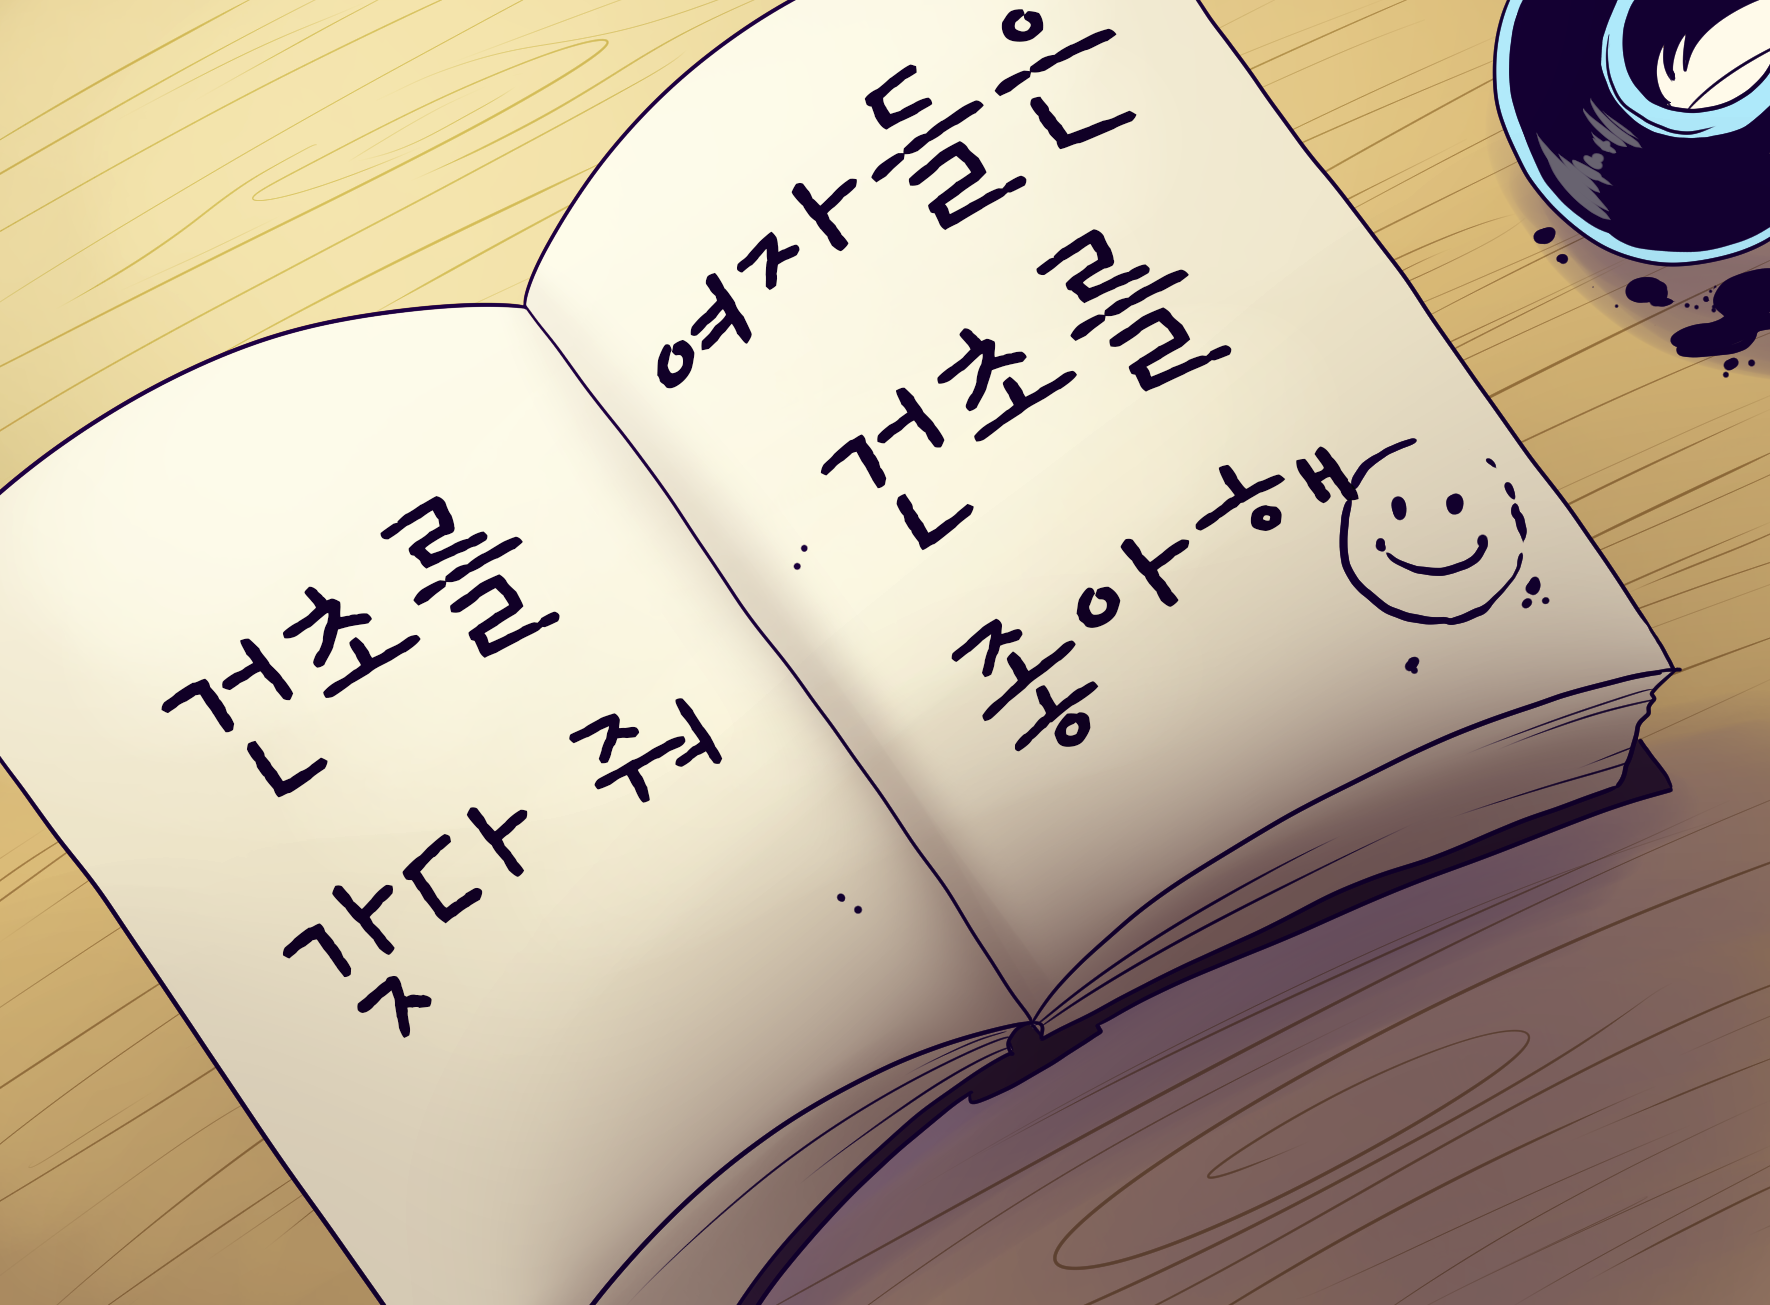 건초를
갖다 줘
여자들은
건초를
좋아해